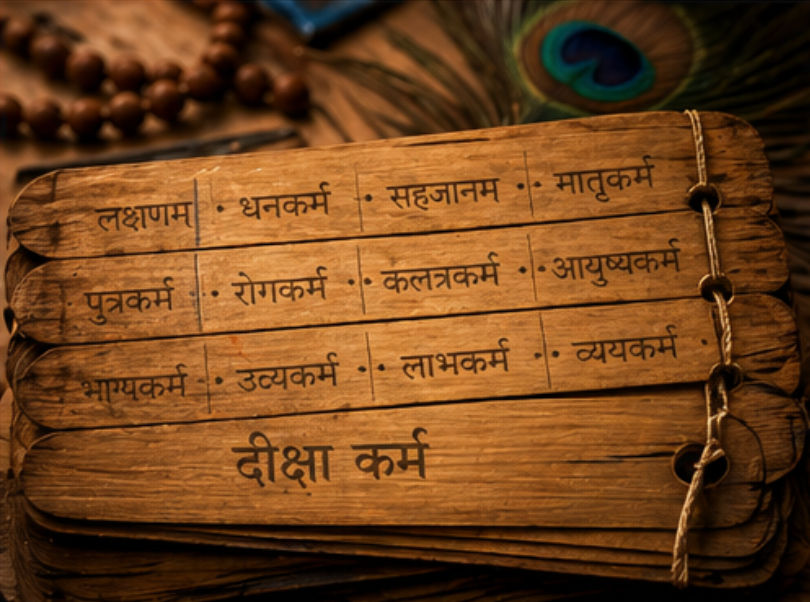 लक्षणम् · धनकर्म · सहजानम · · मातृकर्म
पुत्रकर्म · · रोगकर्म · · कलत्रकर्म · · आयुष्यकर्म
भाग्यकर्म · · उव्यकर्म · · लाभकर्म · · व्ययकर्म ·
दीक्षा कर्म